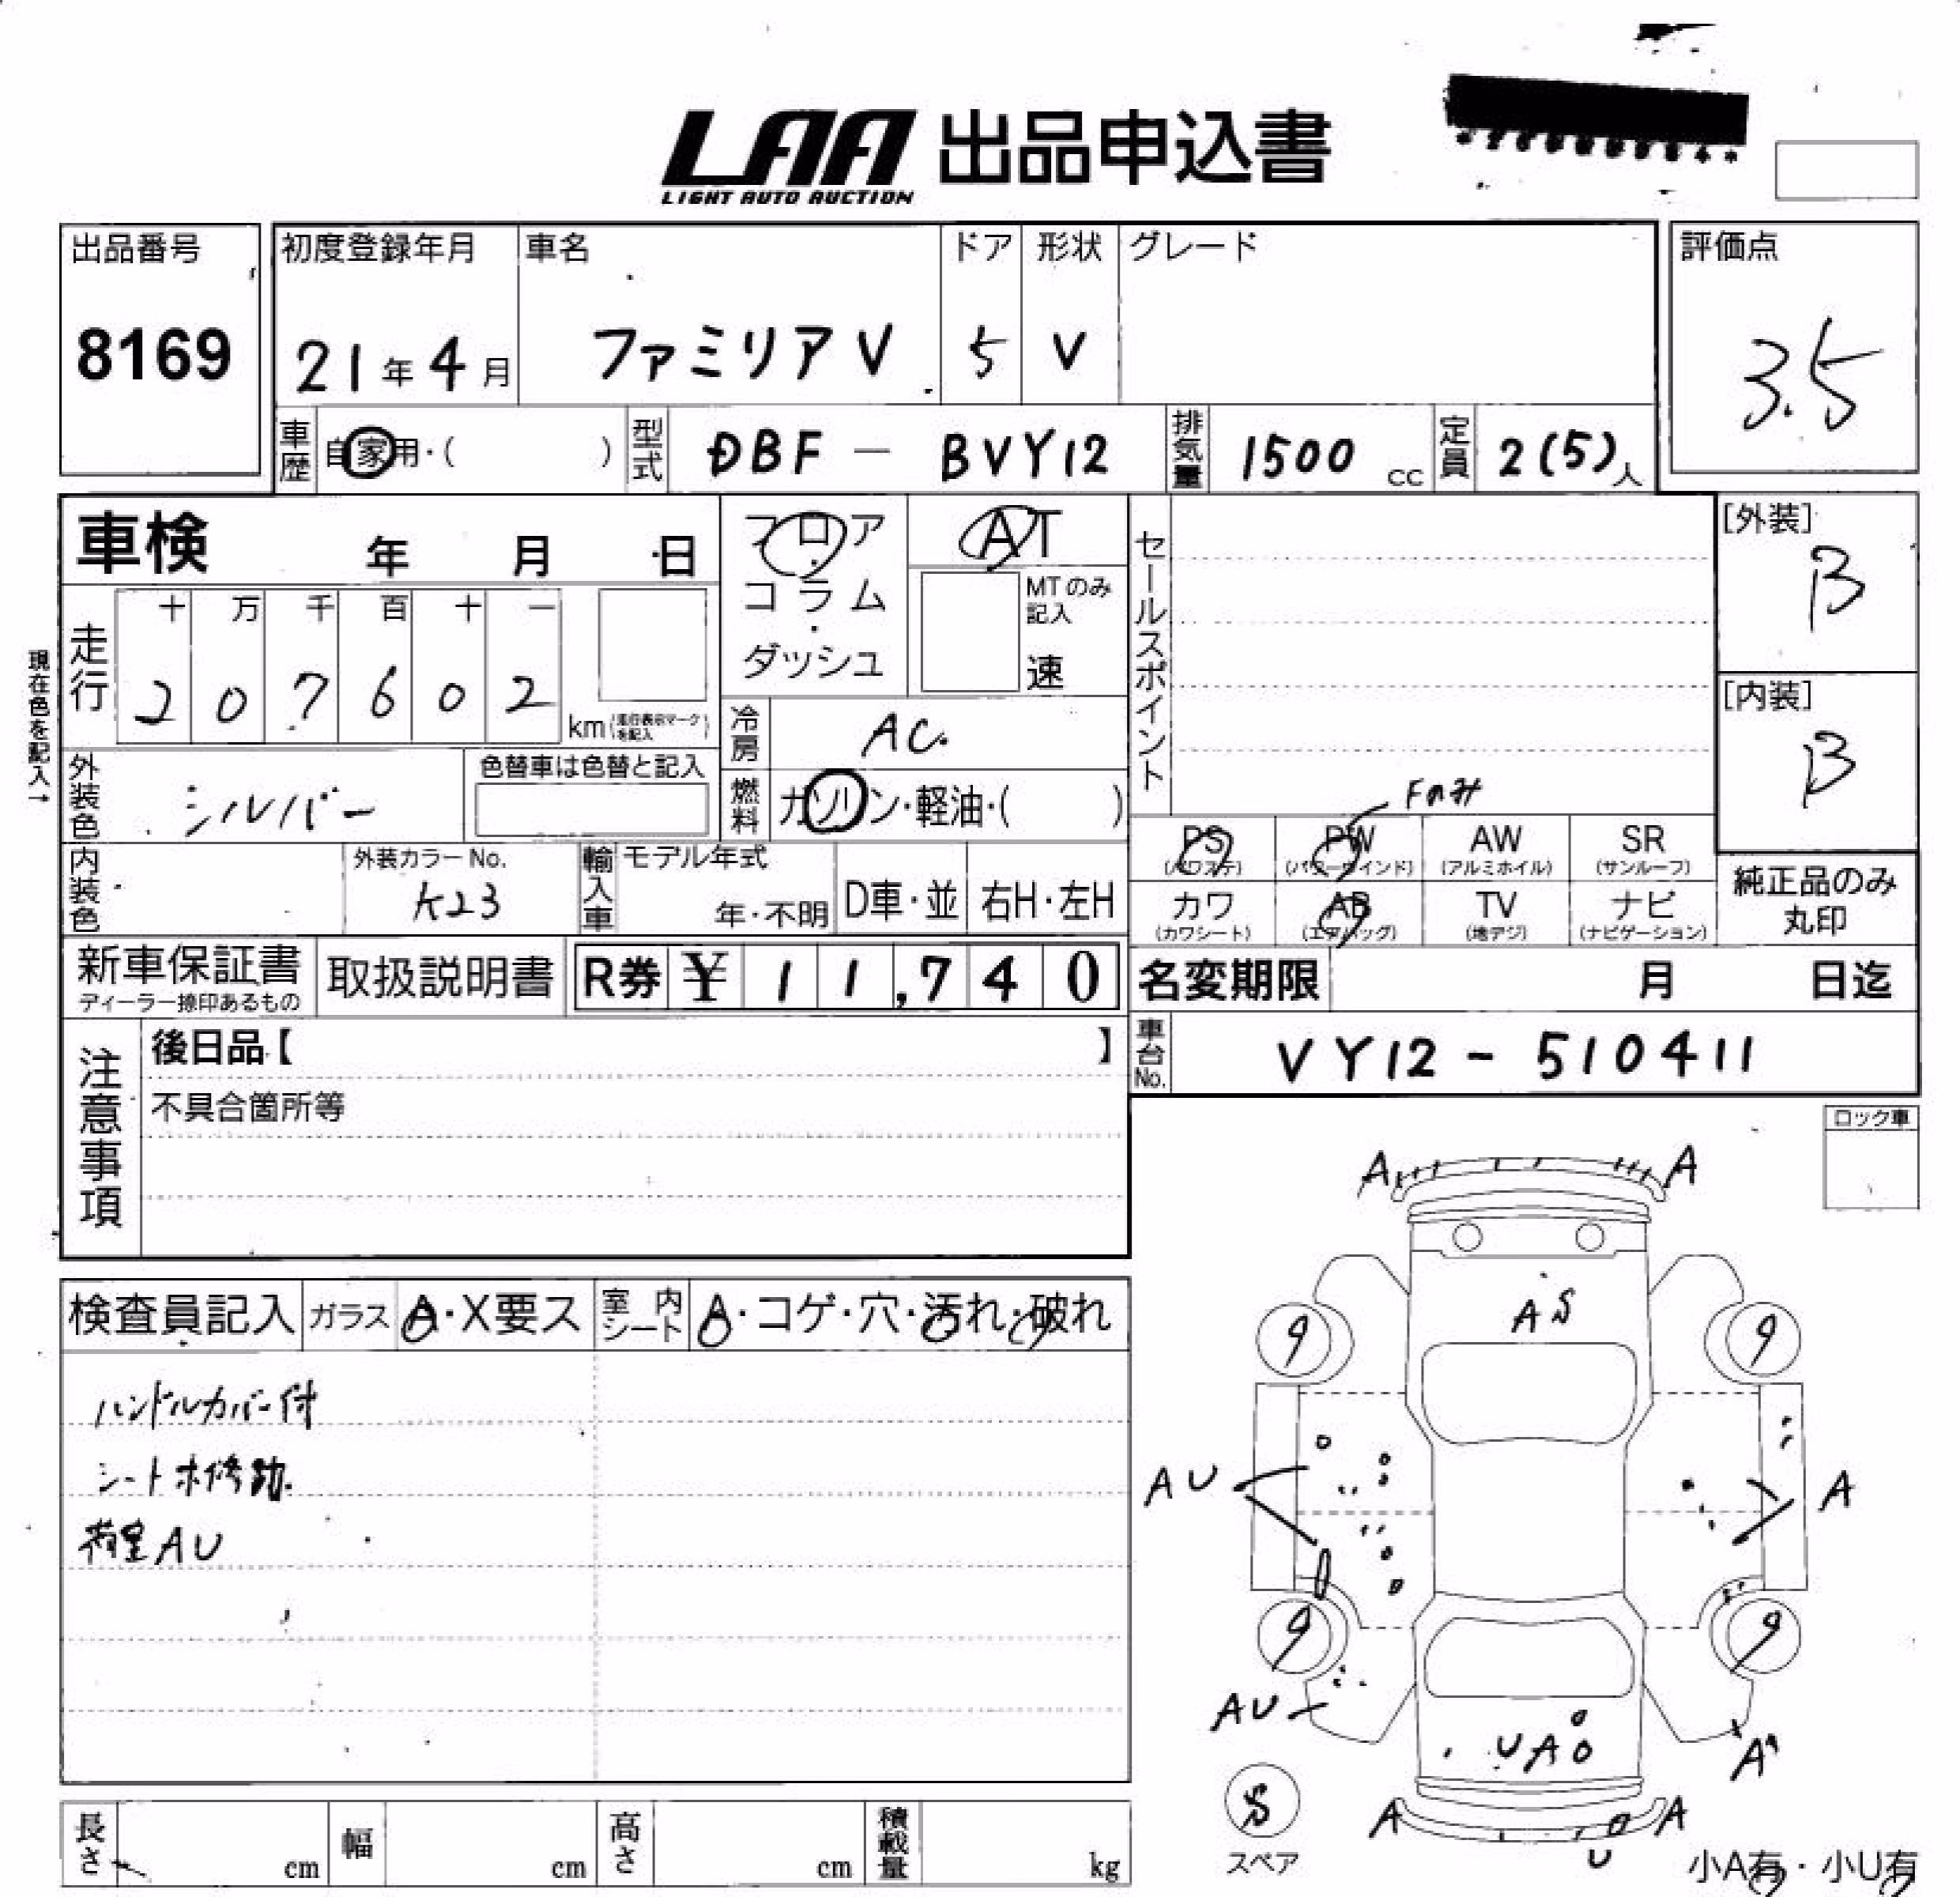 LAA 出品申込書
LIGHT AUTO AUCTION
出品番号
8169
初度登録年月
21年4月
車名
ファミリアV
ドア
5
形状
V
グレード
評価点
3.5
車歴
自家用・( )
型式
DBF - BVY12
排気量
1500 cc
定員
2(5)人
車検 年 月 日
フロア・コラム・ダッシュ
AT
MTのみ記入
速
セールスポイント
[外装]
B
[内装]
B
現在色を記入→
走行
十 万 千 百 十 一
2 0 7 6 0 2
km(走行表示マークを記入)
冷房
AC.
外装色
シルバー
色替車は色替と記入
燃料
ガソリン・軽油・( )
Fのみ
PS (パワステ)
PW (パワーウインド)
AW (アルミホイル)
SR (サンルーフ)
カワ (カワシート)
AB (エアバッグ)
TV (地デジ)
ナビ (ナビゲーション)
純正品のみ丸印
内装色
外装カラーNo.
K23
輸入車
モデル年式
年・不明
D車・並
右H・左H
新車保証書
ディーラー捺印あるもの
取扱説明書
R券 ¥ 11,740
名変期限 月 日迄
注意事項
後日品【 】
不具合箇所等
車台No.
VY12 - 510411
ロック車
検査員記入
ガラス
A・X要ス
室内シート
A・コゲ・穴・汚れ・破れ
ハンドルカバー付
シート補修跡.
荷室AU
A A
A S
9 9
AU A
9 9
AU
UA
A
S
スペア
A A
U
小A有・小U有
長さ cm
幅 cm
高さ cm
積載量 kg